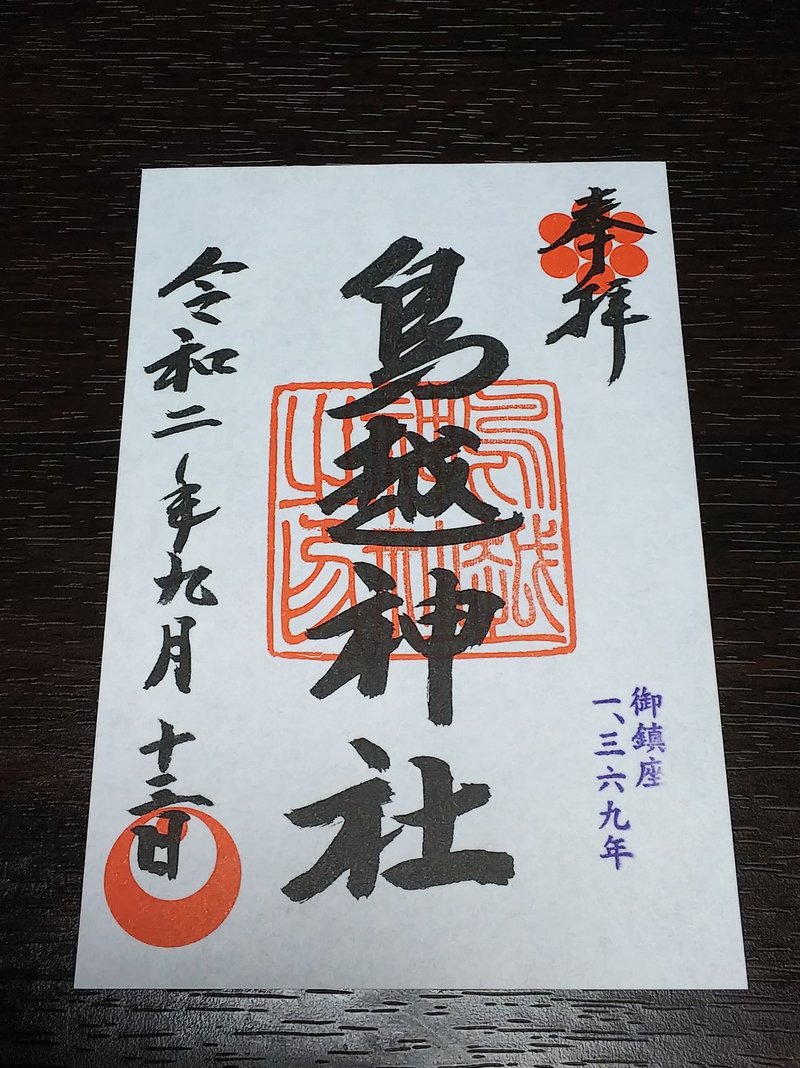 奉拝
御鎮座
一、三六九年
鳥越神社
令和二年九月十三日